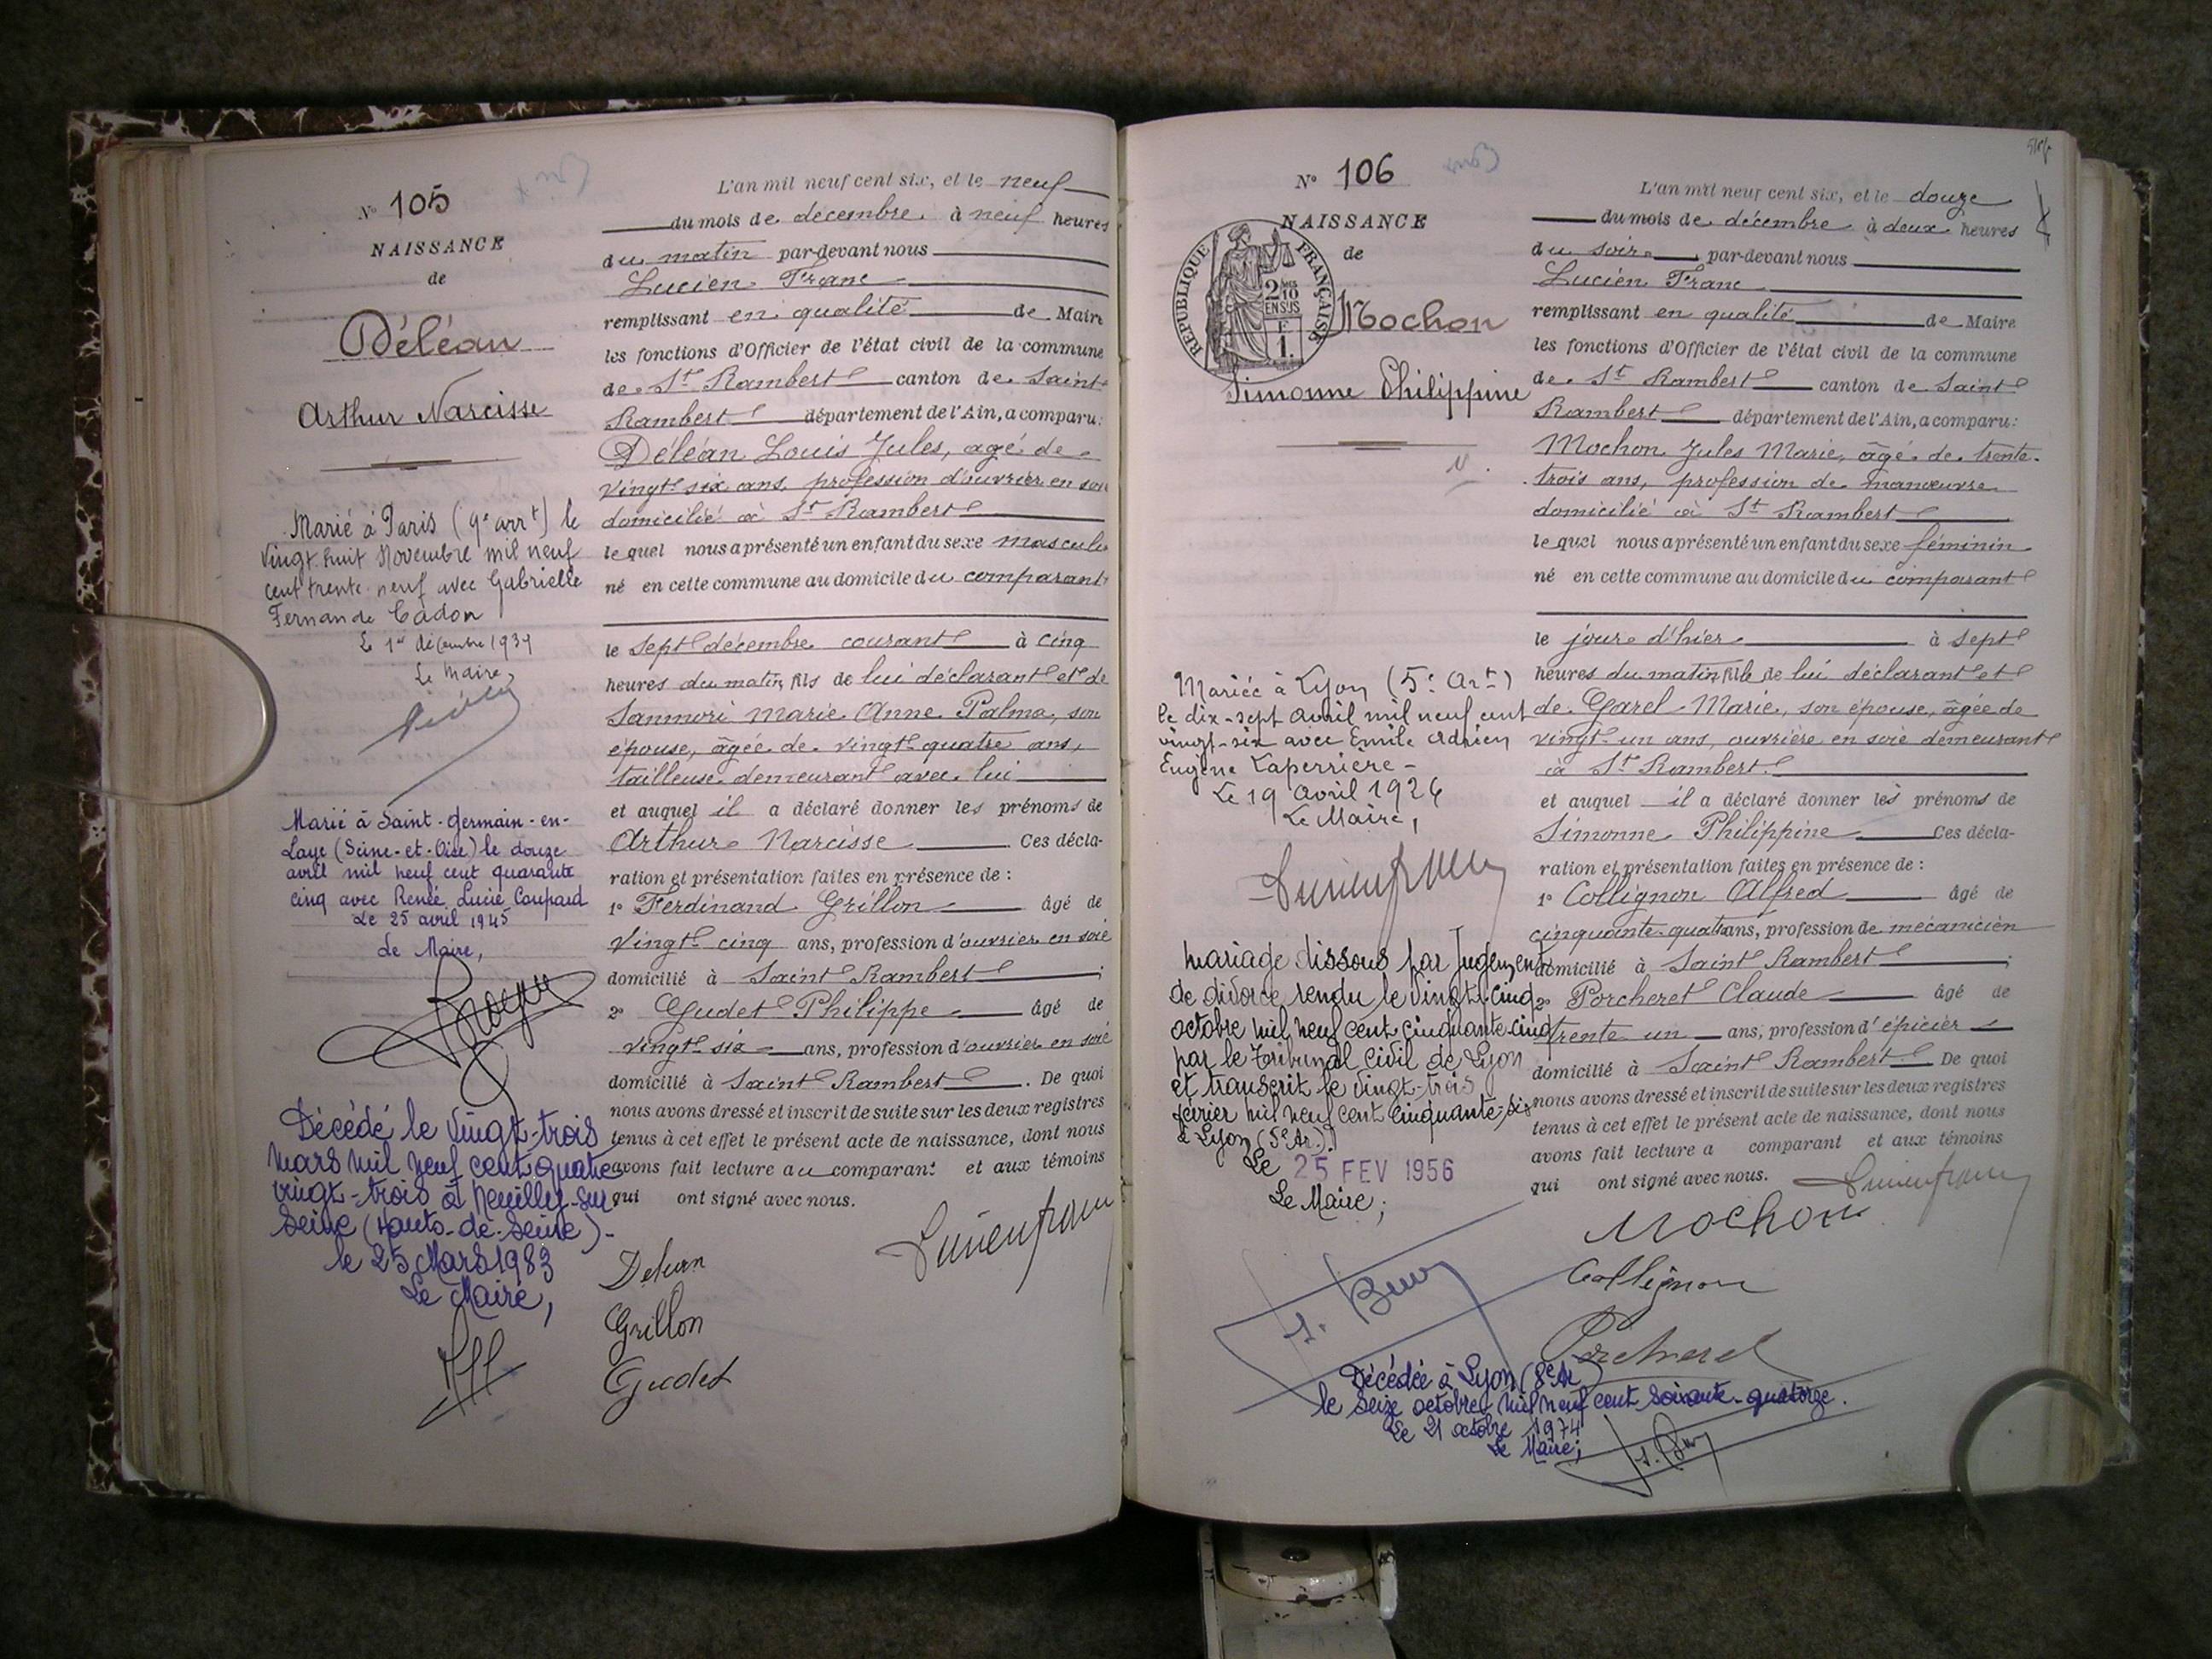 N° 105
NAISSANCE
de
Déléan
Arthur Narcisse
Marié à Paris (9e arrt) le
vingt huit Novembre mil neuf
cent trente neuf avec Gabrielle
Fernande Cadon
Le 1er décembre 1939
Le Maire,
Marié à Saint-Germain-en-
Laye (Seine-et-Oise) le douze
avril mil neuf cent quarante
cinq avec Renée Lucie Coupard
Le 25 avril 1945
Le Maire,
Décédé le vingt-trois
mars mil neuf cent quatre
vingt-trois à Neuilly-sur
Seine (Hauts-de-Seine).
le 25 Mars 1983
Le Maire,
L'an mil neuf cent six, et le neuf
du mois de décembre à neuf heures
du matin par-devant nous
Lucien Franc
remplissant en qualité de Maire
les fonctions d'Officier de l'état civil de la commune
de St Rambert canton de Saint
Rambert département de l'Ain, a comparu:
Déléan Louis Jules, agé de
vingt six ans, profession d'ouvrier en soie
domicilié à St Rambert
lequel nous a présenté un enfant du sexe masculin
né en cette commune au domicile du comparant
le sept décembre courant à cinq
heures du matin, fils de lui déclarant et de
Sanmori Marie Anne Palma, son
épouse, âgée de vingt quatre ans,
tailleuse demeurant avec lui
et auquel il a déclaré donner les prénoms de
Arthur Narcisse Ces décla-
ration et présentation faites en présence de :
1° Ferdinand Grillon âgé de
vingt cinq ans, profession d'ouvrier en soie
domicilié à Saint Rambert ;
2° Gudet Philippe âgé de
vingt six ans, profession d'ouvrier en soie
domicilié à Saint Rambert . De quoi
nous avons dressé et inscrit de suite sur les deux registres
tenus à cet effet le présent acte de naissance, dont nous
avons fait lecture au comparant et aux témoins
qui ont signé avec nous.
Lucien franc
Delean
Grillon
Gudet
N° 106
NAISSANCE
de
REPUBLIQUE FRANÇAISE
2 10
EN SUS
F
1.
Mochon
Simonne Philippine
Mariée à Lyon (5e Art)
le dix-sept avril mil neuf cent
vingt-six avec Emile Adrien
Eugène Laperrière -
Le 19 avril 1926
Le Maire,
Lucien franc
Mariage dissous par jugement
de divorce rendu le vingt-cinq
octobre mil neuf cent cinquante cinq
par le Tribunal civil de Lyon
et transcrit le vingt-trois
février mil neuf cent cinquante-six
à Lyon (5e Ar.)
Le 25 FEV 1956
Le Maire;
L'an mil neuf cent six, et le douze
du mois de décembre à deux heures
du soir par-devant nous
Lucien Franc
remplissant en qualité de Maire
les fonctions d'Officier de l'état civil de la commune
de St Rambert canton de Saint
Rambert département de l'Ain, a comparu:
Mochon Jules Marie, âgé de trente-
trois ans, profession de manœuvre
domicilié à St Rambert
lequel nous a présenté un enfant du sexe féminin
né en cette commune au domicile du comparant
le jour d'hier à sept
heures du matin, fille de lui déclarant et
de Garel Marie, son épouse, âgée de
vingt un ans, ouvrière en soie demeurant
à St Rambert
et auquel il a déclaré donner les prénoms de
Simonne Philippine Ces décla-
ration et présentation faites en présence de :
1° Collignon Alfred âgé de
cinquante quatre ans, profession de mécanicien
domicilié à Saint Rambert ;
2° Porcheret Claude âgé de
trente un ans, profession d'épicier
domicilié à Saint Rambert De quoi
nous avons dressé et inscrit de suite sur les deux registres
tenus à cet effet le présent acte de naissance, dont nous
avons fait lecture a comparant et aux témoins
qui ont signé avec nous.
Lucien franc
Mochon
Collignon
Porcheret
Décédée à Lyon (8e Ar)
le seize octobre mil neuf cent soixante-quatorze.
Le 21 octobre 1974
Le Maire;